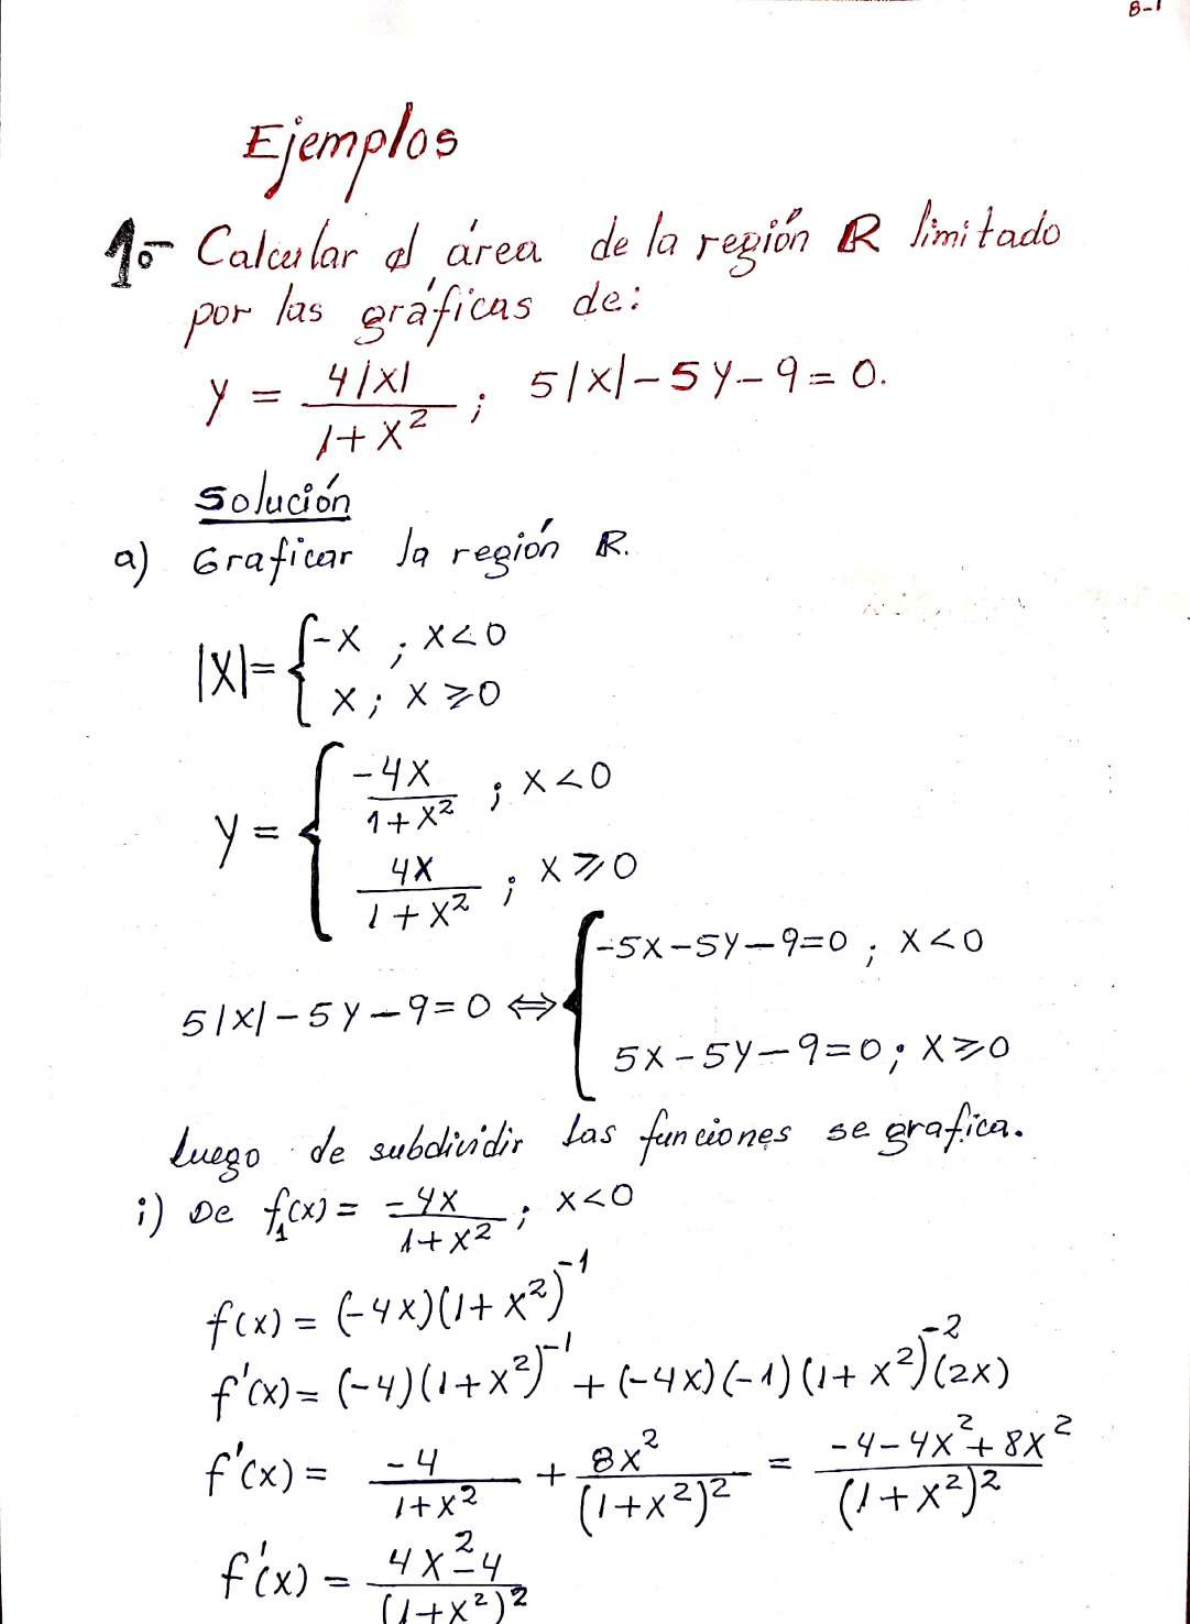 8-1
Ejemplos
1o- Calcular el área de la región R limitado
por las gráficas de:
y = 4|x| / (1+x²) ; 5|x|-5y-9=0.
Solución
a) Graficar la región R.
|x|= { -x ; x<0
x ; x⩾0
y = { -4x / (1+x²) ; x<0
4x / (1+x²) ; x⩾0
5|x|-5y-9=0 ⇔ { -5x-5y-9=0 ; x<0
5x-5y-9=0 ; x⩾0
Luego de subdividir las funciones se grafica.
i) De f₁(x) = -4x / (1+x²) ; x<0
f(x) = (-4x)(1+x²)⁻¹
f'(x) = (-4)(1+x²)⁻¹ + (-4x)(-1)(1+x²)⁻²(2x)
f'(x) = -4 / (1+x²) + 8x² / (1+x²)² = (-4-4x²+8x²) / (1+x²)²
f'(x) = (4x²-4) / (1+x²)²